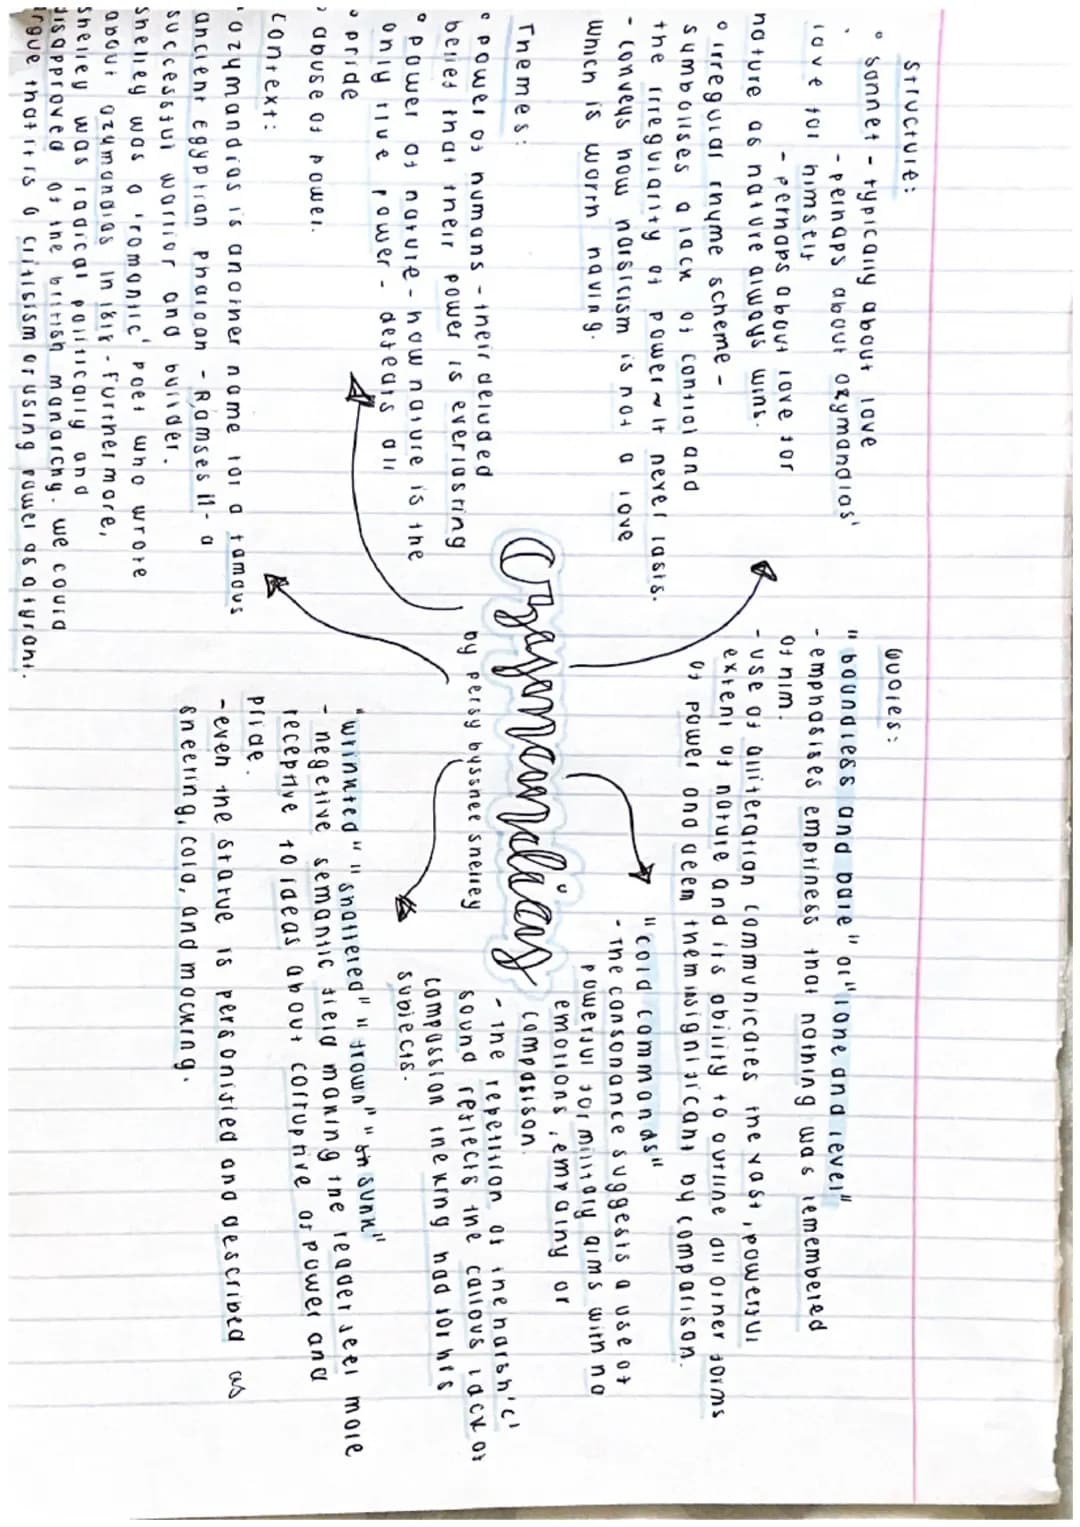 Structure:
° sonnet - typically about love
- perhaps about ozymandias'
love for himself
- perhaps about love for
nature as nature always wins.
° irregular rhyme scheme -
symbolises a lack of control and
the irregularity of power ~ It never lasts.
- conveys how narsicism is not a love
which is worth having.
Themes:
° power of humans - their deluded
belief that their power is everlasting
° power of nature - how nature is the
only true power - defeats all
° pride
° abuse of power.
Context:
° ozymandias is another name for a famous
ancient Egyptian pharoah - Ramses II - a
successful warrior and builder.
shelley was a 'romantic' poet who wrote
about ozymandias in 1818 - furthermore,
shelley was radical politically and
disapproved of the british monarchy. we could
argue that it is a critisism of using power as a tyrant.
Ozymandias
by persy bysshee shelley
Quotes:
"boundless and bare" or "lone and level"
- emphasises emptiness that nothing was remembered
of him.
- use of alliteration communicates the vast, powerful
extent of nature and its ability to outline all other forms
of power and deem them insignificant by comparison.
"cold commands"
- The consonance suggests a use of
powerful for military aims with no
emotions, empathy or
compassison.
- the repetition of the harsh 'c'
sound reflects the callous lack of
compassion the king had for his
subjects.
"wrinkled" "shattered" "frown" "sunk"
- negetive semantic field making the reader feel more
receptive to ideas about corruptive of power and
pride.
- even the statue is personified and described as
sneering, cold, and mocking.